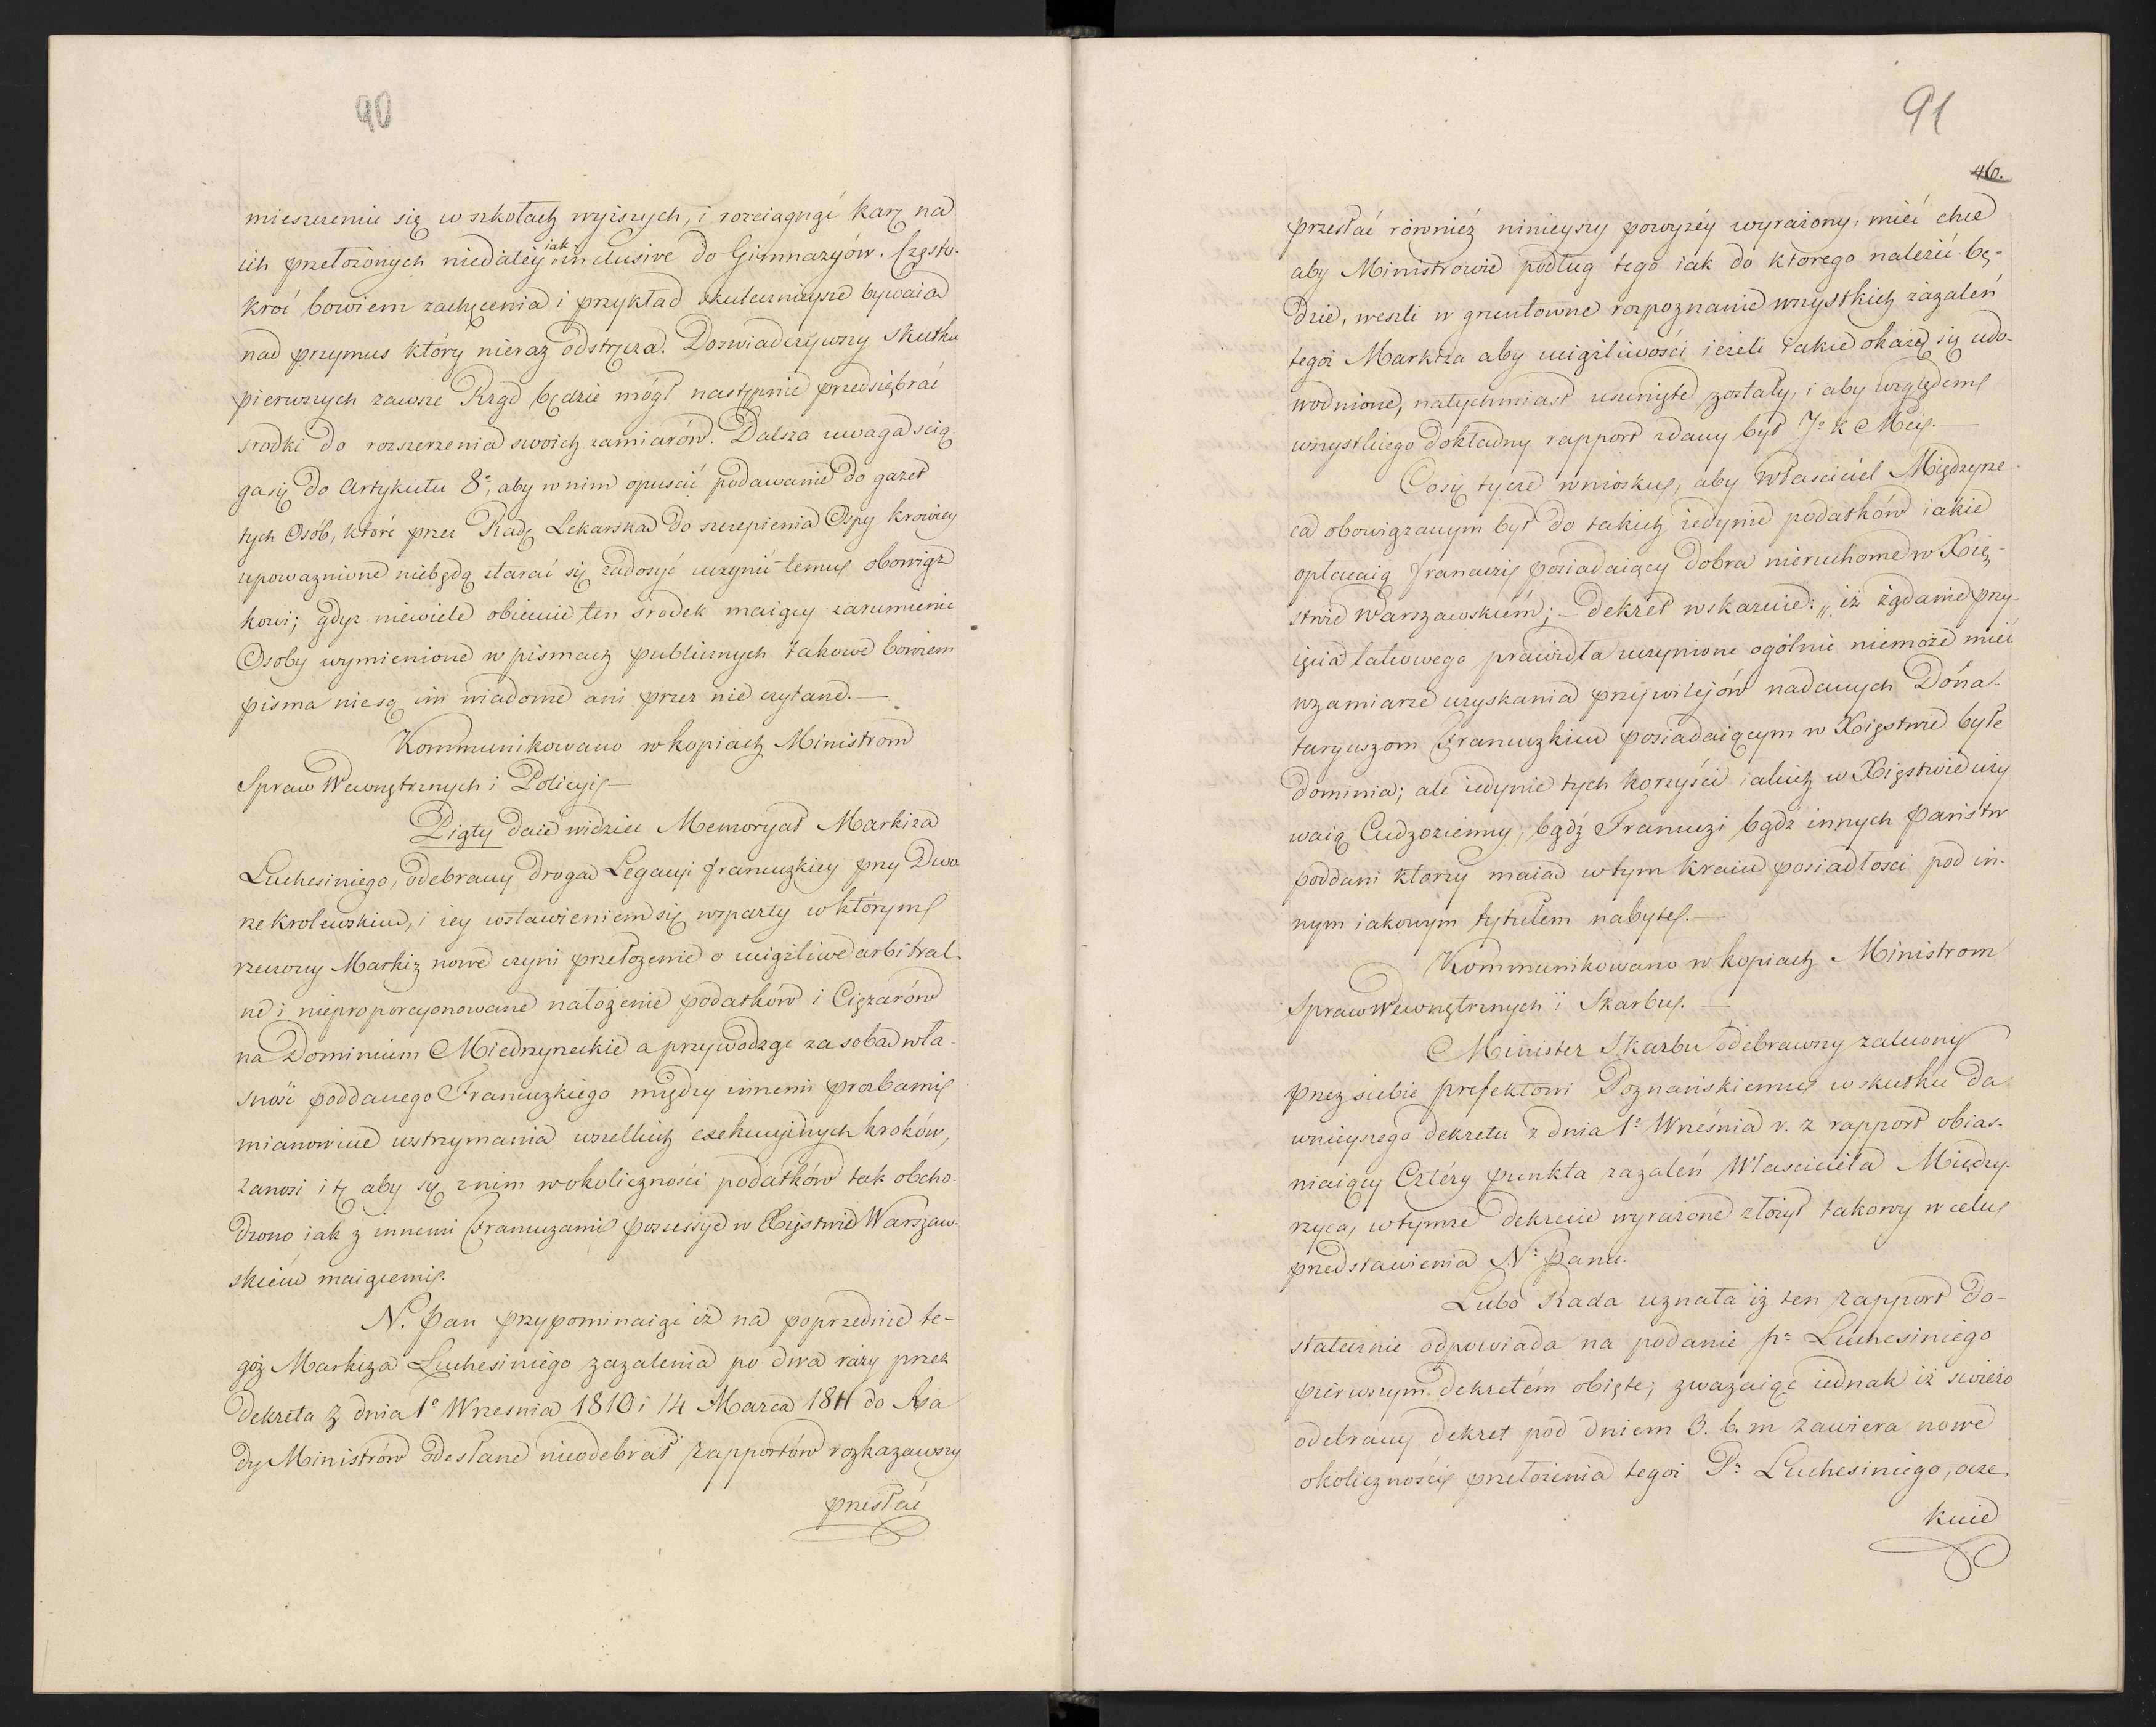 90
mieszczeniu się w szkołach wyższych, i rozciągnąć karę na
ich przełożonych niedaléy jak inclusive do Gimnazyów. Często-
kroć bowiem zachęcenia i przykład skutecznieysze bywaią
nad przymus który nieraz odstręcza. Doswiadczywszy skutku
pierwszych zawsze Rząd będzie mógł następnie przedsiębrać
srodki do rozszerzenia swoich zamiarów. Dalsza uwaga scią-
ga się do Artykułu 8º, aby w nim opuscić podawanie do gazet
tych Osób, które przez Radę Lekarską do szczepienia Ospy krowiey
upoważnione niebędą starać się zadosyć uczynić temu obowiąz
kowi; gdyż niewiele obiecuie ten srodek maiący zarumienić
Osoby wymienione w pismach publicznych takowe bowiem
pisma nie są im wiadome ani przez nie czytane.—
Kommunikowano w kopiach Ministrom
Spraw Wewnętrznych i Policyi—
Piąty daie widzieć Memoryał Markiza
Luchesiniego, odebrany drogą Legacyi francuzkiey przy Dwo
rze Krolewskim, i iey wstawieniem się wsparty w którym
rzeczony Markiz nowe czyni przełożenie o uciążliwe arbitral-
ne i nieproporcyonowane nałożenie podatków i Ciężarów
na Dominium Miedzyrzeckie a przywodząc za sobą wła-
sność poddanego Francuzkiego między innemi prozbami
mianowicie wstrzymania wszelkich exekucyjnych kroków,
zanosi i tę aby się z nim w okoliczności podatków tak obcho-
dzono iak z innemi Francuzami possessye w Xięstwie Warszaw-
skiém maiącemi.
N. Pan przypominaiąc iż na poprzednie te-
goż Markiza Luchesiniego zażalenia po dwa razy przez
Dekreta z dnia 1º Wrzesnia 1810 i 14 Marca 1811 do Ra
dy Ministrów odesłane nieodebrał rapportów rozkazawszy
przesłać
91
46.
przesłać również ninieyszy powyżéy wyrażony, mieć chce
aby Ministrowie podług tego iak do którego należeć bę-
dzie, weszli w gruntowne rozpoznanie wszystkich zażaleń
tegoż Markiza aby uciążliwości ieżeli iakie okażą się udo-
wodnione, natychmiast usunięte zostały, i aby względem
wszystkiego dokładny rapport zdany był Jº K Mci.—
Co się tycze wniosku, aby Właściciel Międzyrze-
ca obowiązanym był do takich iedynie podatków iakie
opłacaią francuzi posiadaiący dobra nieruchome w Xię-
stwie Warszawskiém;— dekret wskazuie: „iż żądanie przy-
ięcia takowego prawidła uczynione ogólnie niemoże mieć
w zamiarze uzyskania przywilejów nadanych Dona-
taryuszom Francuzkim posiadaiącym w Xięstwie byłe
dominia; ale iedynie tych korzyści iakich w Xięstwie uży
waią Cudzoziemcy, bądź Francuzi bądź innych Państw
poddani którzy maią w tym kraiu posiadłosci pod in-
nym iakowym tytułem nabyte.—
Kommunikowano w kopiach Ministrom
Spraw Wewnętrznych i Skarbu.—
Minister Skarbu odebrawszy zalecony
przez siebie prefektowi Poznańskiemu w skutku da
wnieyszego dekretu z dnia 1º Września r. z rapport obias-
niaiący Cztéry punkta zażaleń Własciciela Między-
rzyca, w tymże dekrecie wyrażone złożył takowy w celu
przedstawienia Nº Panu.
Lubo Rada uznała iż ten rapport do-
statecznie odpowiada na podanie pª Luchesiniego
pierwszym dekretém obięte; zważaiąc iednak iż swieżo
odebrany dekret pod dniem 3. b. m zawiera nowe
okoliczności przełożenia tegoż Pª Luchesiniego, ocze-
kuie